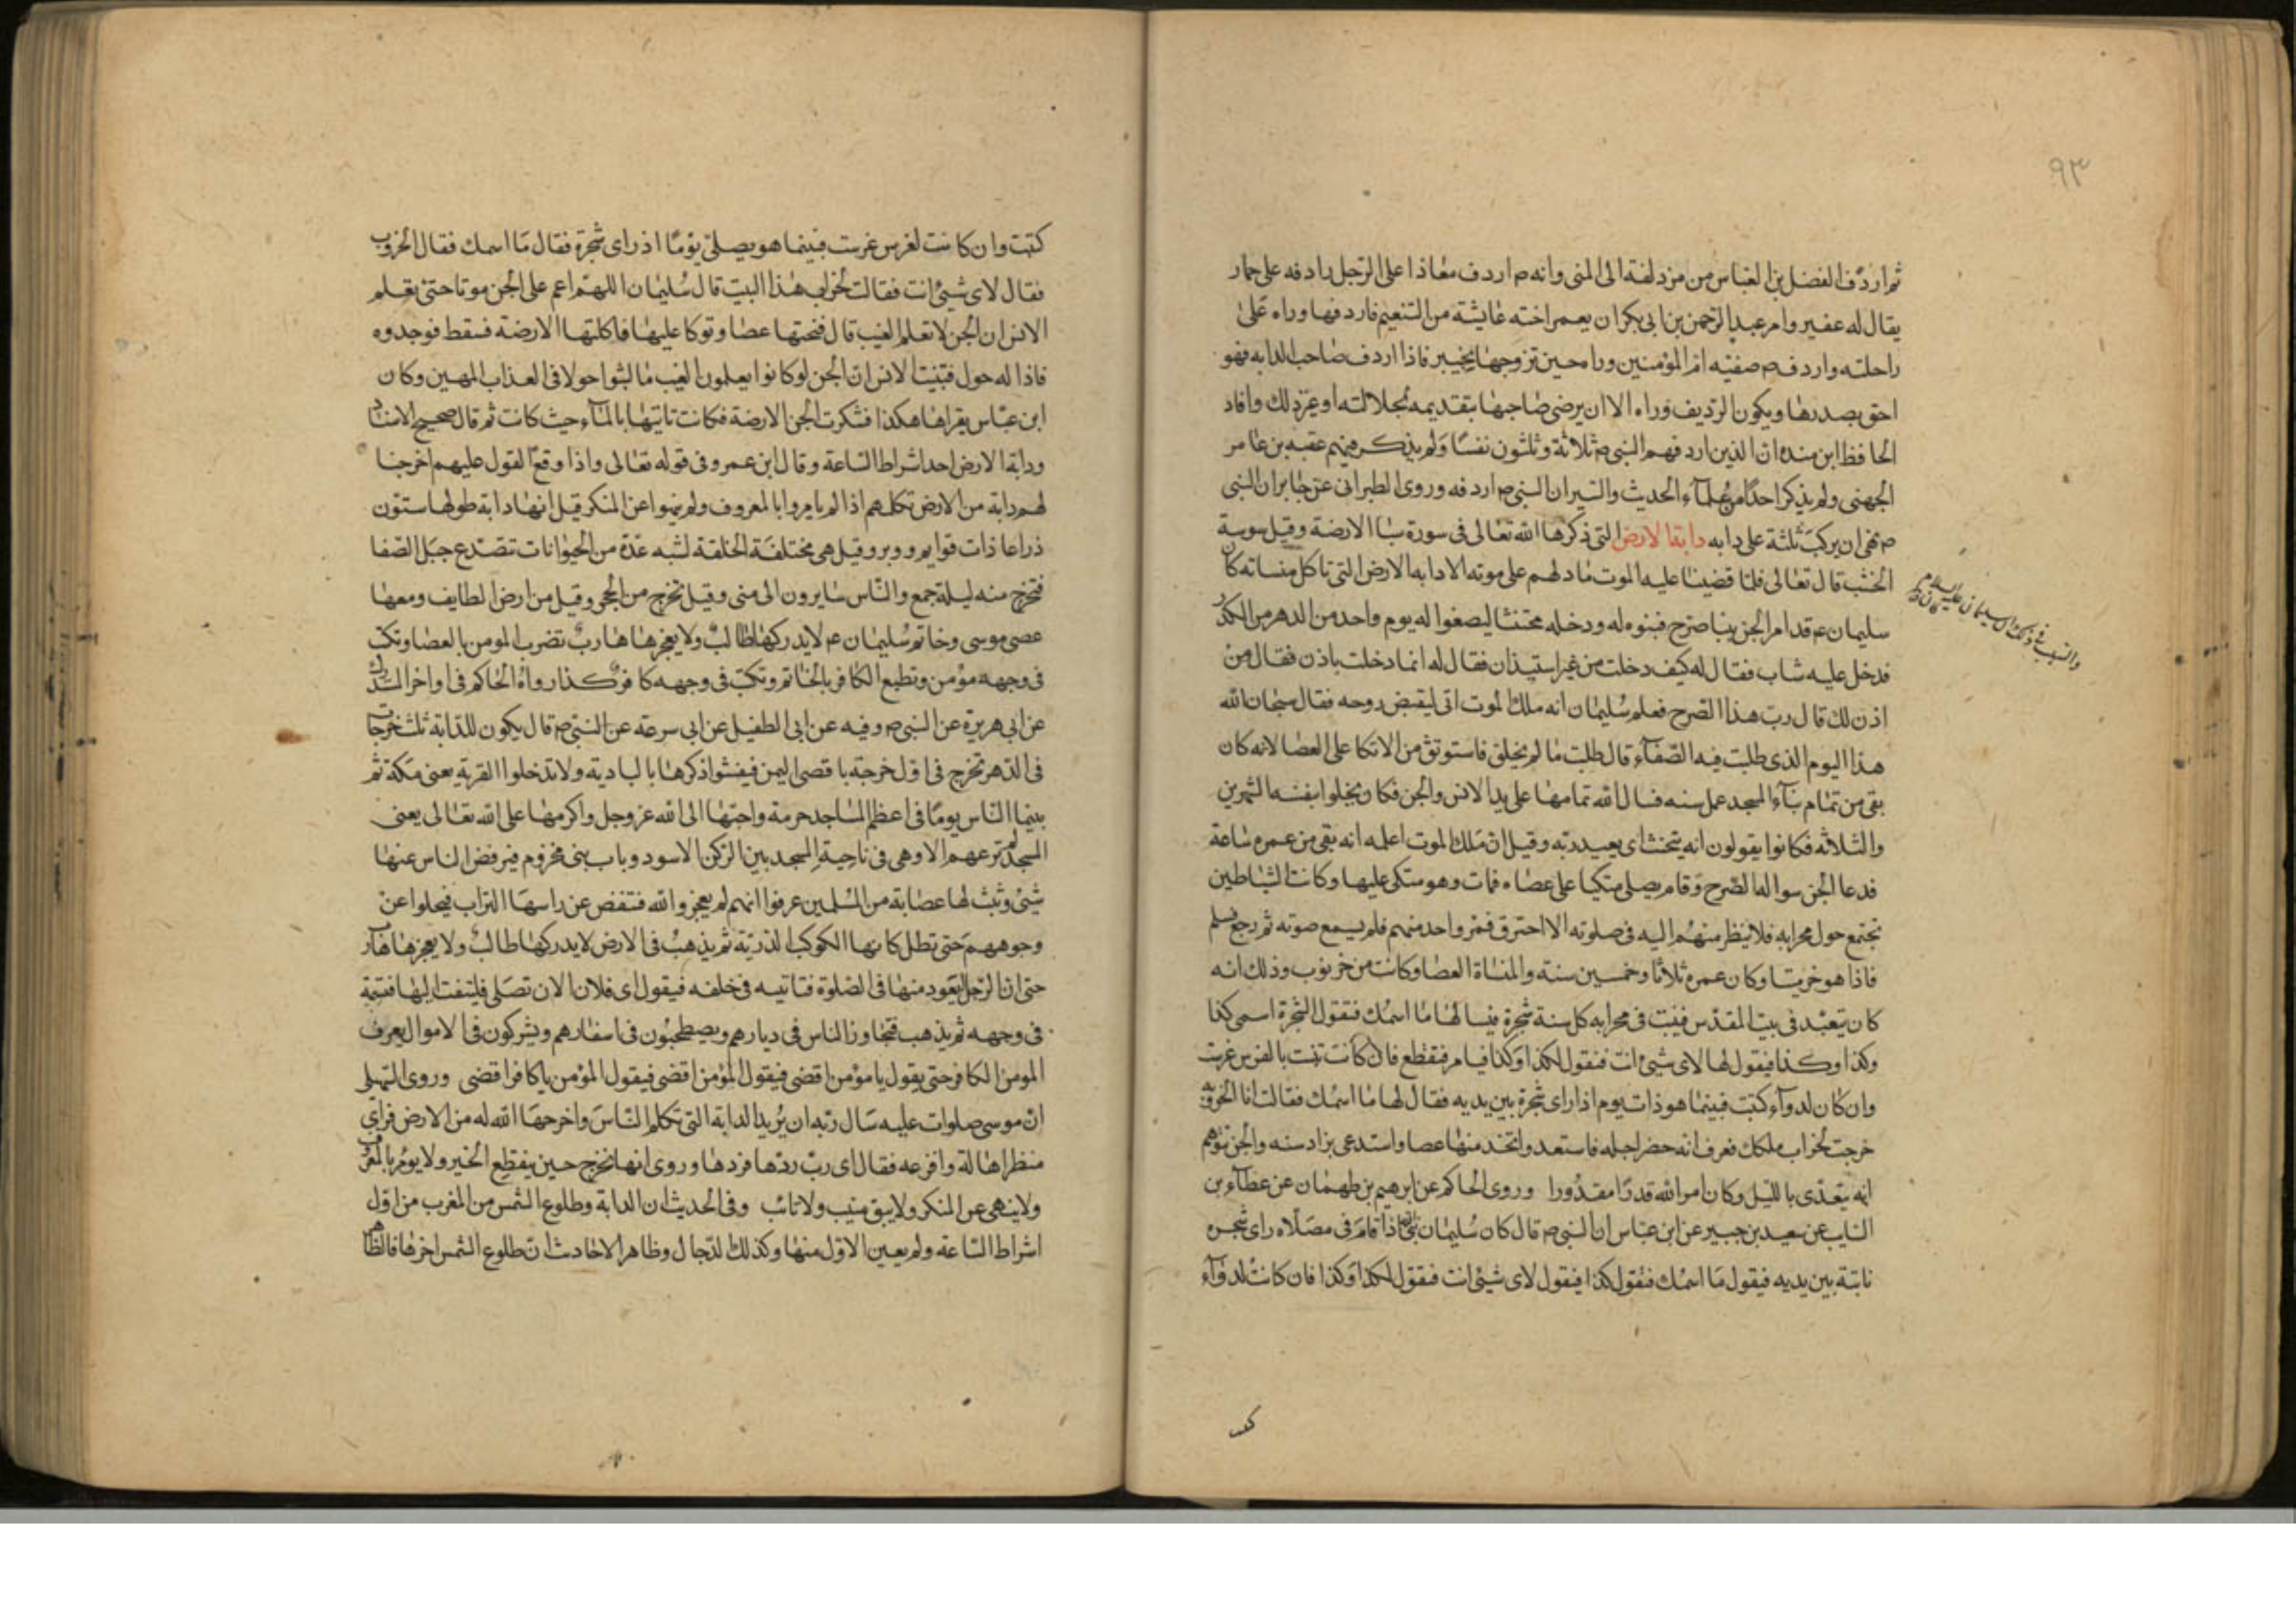 ٩٣
ثم اردف الفضل بن العباس من مزدلفة الى المنى وانه م اردف معاذا على الرحل رادفه على حمار
يقال له عفير وامر عبد الرحمن بن ابى بكر ان يعمر اخته عايشة من التنعيم فاردفها وراه على
راحلته واردف م صفيه ام المؤمنين وراه حين تزوجها بخيبر فاذا اردف صاحب الدابه فهو
احق بصدرها ويكون الرديف وراه الا ان يرضى صاحبها بتقديمه لجلالته او غير ذلك وافاد
الحافظ ابن منده ان الذين اردفهم النبى م ثلاثة وثلثون نفسا ولم يذكر منهم عقبه بن عامر
الجهنى ولم يذكر احدا من علمآء الحديث والسير ان النبى م اردفه وروى الطبرانى عن جابر ان النبى
م نهى ان يركب ثلثة على دابه دابة الارض التى ذكرها الله تعالى فى سورة سبا الارضة وقيل سوسة
الخشب قال تعالى فلما قضينا عليه الموت ما دلهم على موته الا دابه الارض التى تاكل منساته كان
والسبب فى ذلك ان سليمان عليه السلام كان
سليمان عم قد امر الجن ببنا صرح فبنوه له ودخله مختشا ليصفوا له يوم واحد من الدهر من الكدر
فدخل عليه شاب فقال له كيف دخلت من غير استيذان فقال له انما دخلت باذن فقال من
اذن لك قال رب هذا الصرح فعلم سليمان انه ملك الموت اتى ليقبض روحه فقال سبحان الله
هذا اليوم الذى طلبت فيه الصفآء قال طلبت ما لم يخلق فاستوثق من الاتكا على العصا لانه كان
بقى من تمام بنآء المسجد عمل سنه فسال الله تمامها على يد الانس والجن فكان يخلوا بنفسه الشهرين
والثلاثه فكانوا يقولون انه يتحنث اى يعبد ربه وقيل ان ملك الموت اعلمه انه بقى من عمره ساعة
فدعا الجن سوا له الصرح وقام يصلى متكيا على عصاه فمات وهو متكى عليها وكانت الشياطين
تجتمع حول محرابه فلا ينظر منهم اليه فى صلوته الا احترق فمر واحد منهم فلم يسمع صوته ثم رجع فسلم
فاذا هو خر ميتا وكان عمره ثلاثا وخمسين سنة والمنساة العصا وكانت من خرنوب وذلك انه
كان يتعبد فى بيت المقدس فينبت فى محرابه كل سنة شجرة فيسالها ما اسمك فتقول الشجرة اسمى كذا
وكذا وكذا فيقول لها لاى شيئ انت فتقول لكذا وكذا فيامر فتقطع فان كانت تنبت بالغرس غرست
وان كان لدوآء كتبت فبينما هو ذات يوم اذا راى شجرة بين يديه فقال لها ما اسمك فقالت انا الخروبه
خرجت لخراب ملكك فعرف انه حضر اجله فاستعد واتخذ منها عصا واستدعى بزاد سنه والجن توهم
انه يتغذى بالليل وكان امر الله قدرا مقدورا وروى الحاكم عن ابرهيم بن طهمان عن عطآء بن
السايب عن سعيد بن جبير عن ابن عباس ان النبى م قال كان سليمان نبى الله اذا قام فى مصلاه راى شجره
نابتة بين يديه فيقول ما اسمك فتقول كذا فيقول لاى شيئ انت فتقول لكذا وكذا فان كانت لدوآء
كتبت وان كانت لغرس غرست فبينما هو يصلى يوما اذ راى شجرة فقال ما اسمك فقال الخروب
فقال لاى شيئ انت فقالت لخراب هذا البيت قال سليمان اللهم اعم على الجن موتا حتى تعلم
الانس ان الجن لا تعلم الغيب قال فنحتها عصا وتوكا عليها فاكلتها الارضة فسقط فوجدوه
فاذا له حول فتبينت الانس ان الجن لو كانوا يعلمون الغيب ما لبثوا حولا فى العذاب المهين وكان
ابن عباس يقراها هكذا فشكرت الجن الارضة فكانت تاتيها بالمآء حيث كانت ثم قال صحيح الاسناد
ودابة الارض احد اشراط الساعة وقال ابن عمر وفى قوله تعالى واذا وقع القول عليهم اخرجنا
لهم دابة من الارض تكلمهم اذا لم يامروا بالمعروف ولم ينهوا عن المنكر قيل انها دابة طولها ستون
ذراعا ذات قوايم ووبر وقيل هى مختلفة الخلقة تشبه عدة من الحيوانات تنصدع جبل الصفا
فتخرج منه ليلة جمع والناس سايرون الى منى وقيل تخرج من الحجر وقيل من ارض الطايف ومعها
عصى موسى وخاتم سليمان عم لا يدركها طالب ولا يعجزها هارب تضرب المومن بالعصا وتكتب
فى وجهه مؤمن وتطبع الكافر بالخاتم وتكتب فى وجهه كافر كذا رواه الحاكم فى اواخر المستدرك
عن ابى هريرة عن النبى م وفيه عن ابى الطفيل عن ابى سرعة عن النبى م قال يكون للدابة ثلث خرجات
فى الدهر تخرج فى اول خرجة باقصى اليمن فيفشوا ذكرها بالبادية ولا تدخلوا القرية يعنى مكة ثم
بينما الناس يوما فى اعظم المساجد حرمة واحبها الى الله عز وجل واكرمها على الله تعالى يعنى
المسجد لم ترعهم الا وهى فى ناحية المسجد بين الركن الاسود وباب بنى مخزوم فيرفض الناس عنها
شيئ وثبت لها عصابة من المسلمين عرفوا انهم لم يعجزوا الله فتنفض عن راسها التراب فيجلوا عن
وجوههم حتى تظل كانها الكوكب الدرية ثم يذهب فى الارض لا يدركها طالب ولا يعجزها هارب
حتى ان الرجل ليتعود منها فى الصلوة فتاتيه فى خلفه فيقول اى فلان الان تصلى فيلتفت اليها فتسمه
فى وجهه ثم يذهب فتجاوز الناس فى ديارهم ويصطحبون فى اسفارهم ويشركون فى الاموال يعرف
المومن الكافر حتى يقول يا مؤمن اقضى فيقول المؤمن اقضى فيقول المؤمن يا كافر اقضى وروى السهيلى
ان موسى صلوات عليه سال ربه ان يريه الدابة التى تكلم الناس واخرجها الله له من الارض فراى
منظرا هاله وافزعه فقال اى رب ردها فردها وروى انها تخرج حين ينقطع الخير ولا يؤمر بالمعروف
ولا ينهى عن المنكر ولا يبق منيب ولا تائب وفى الحديث ان الدابة وطلوع الشمس من المغرب من اول
اشراط الساعة ولم يعين الاول منها وكذلك الدجال وظاهر الاحاديث ان طلوع الشمس اخرها فالظاهر